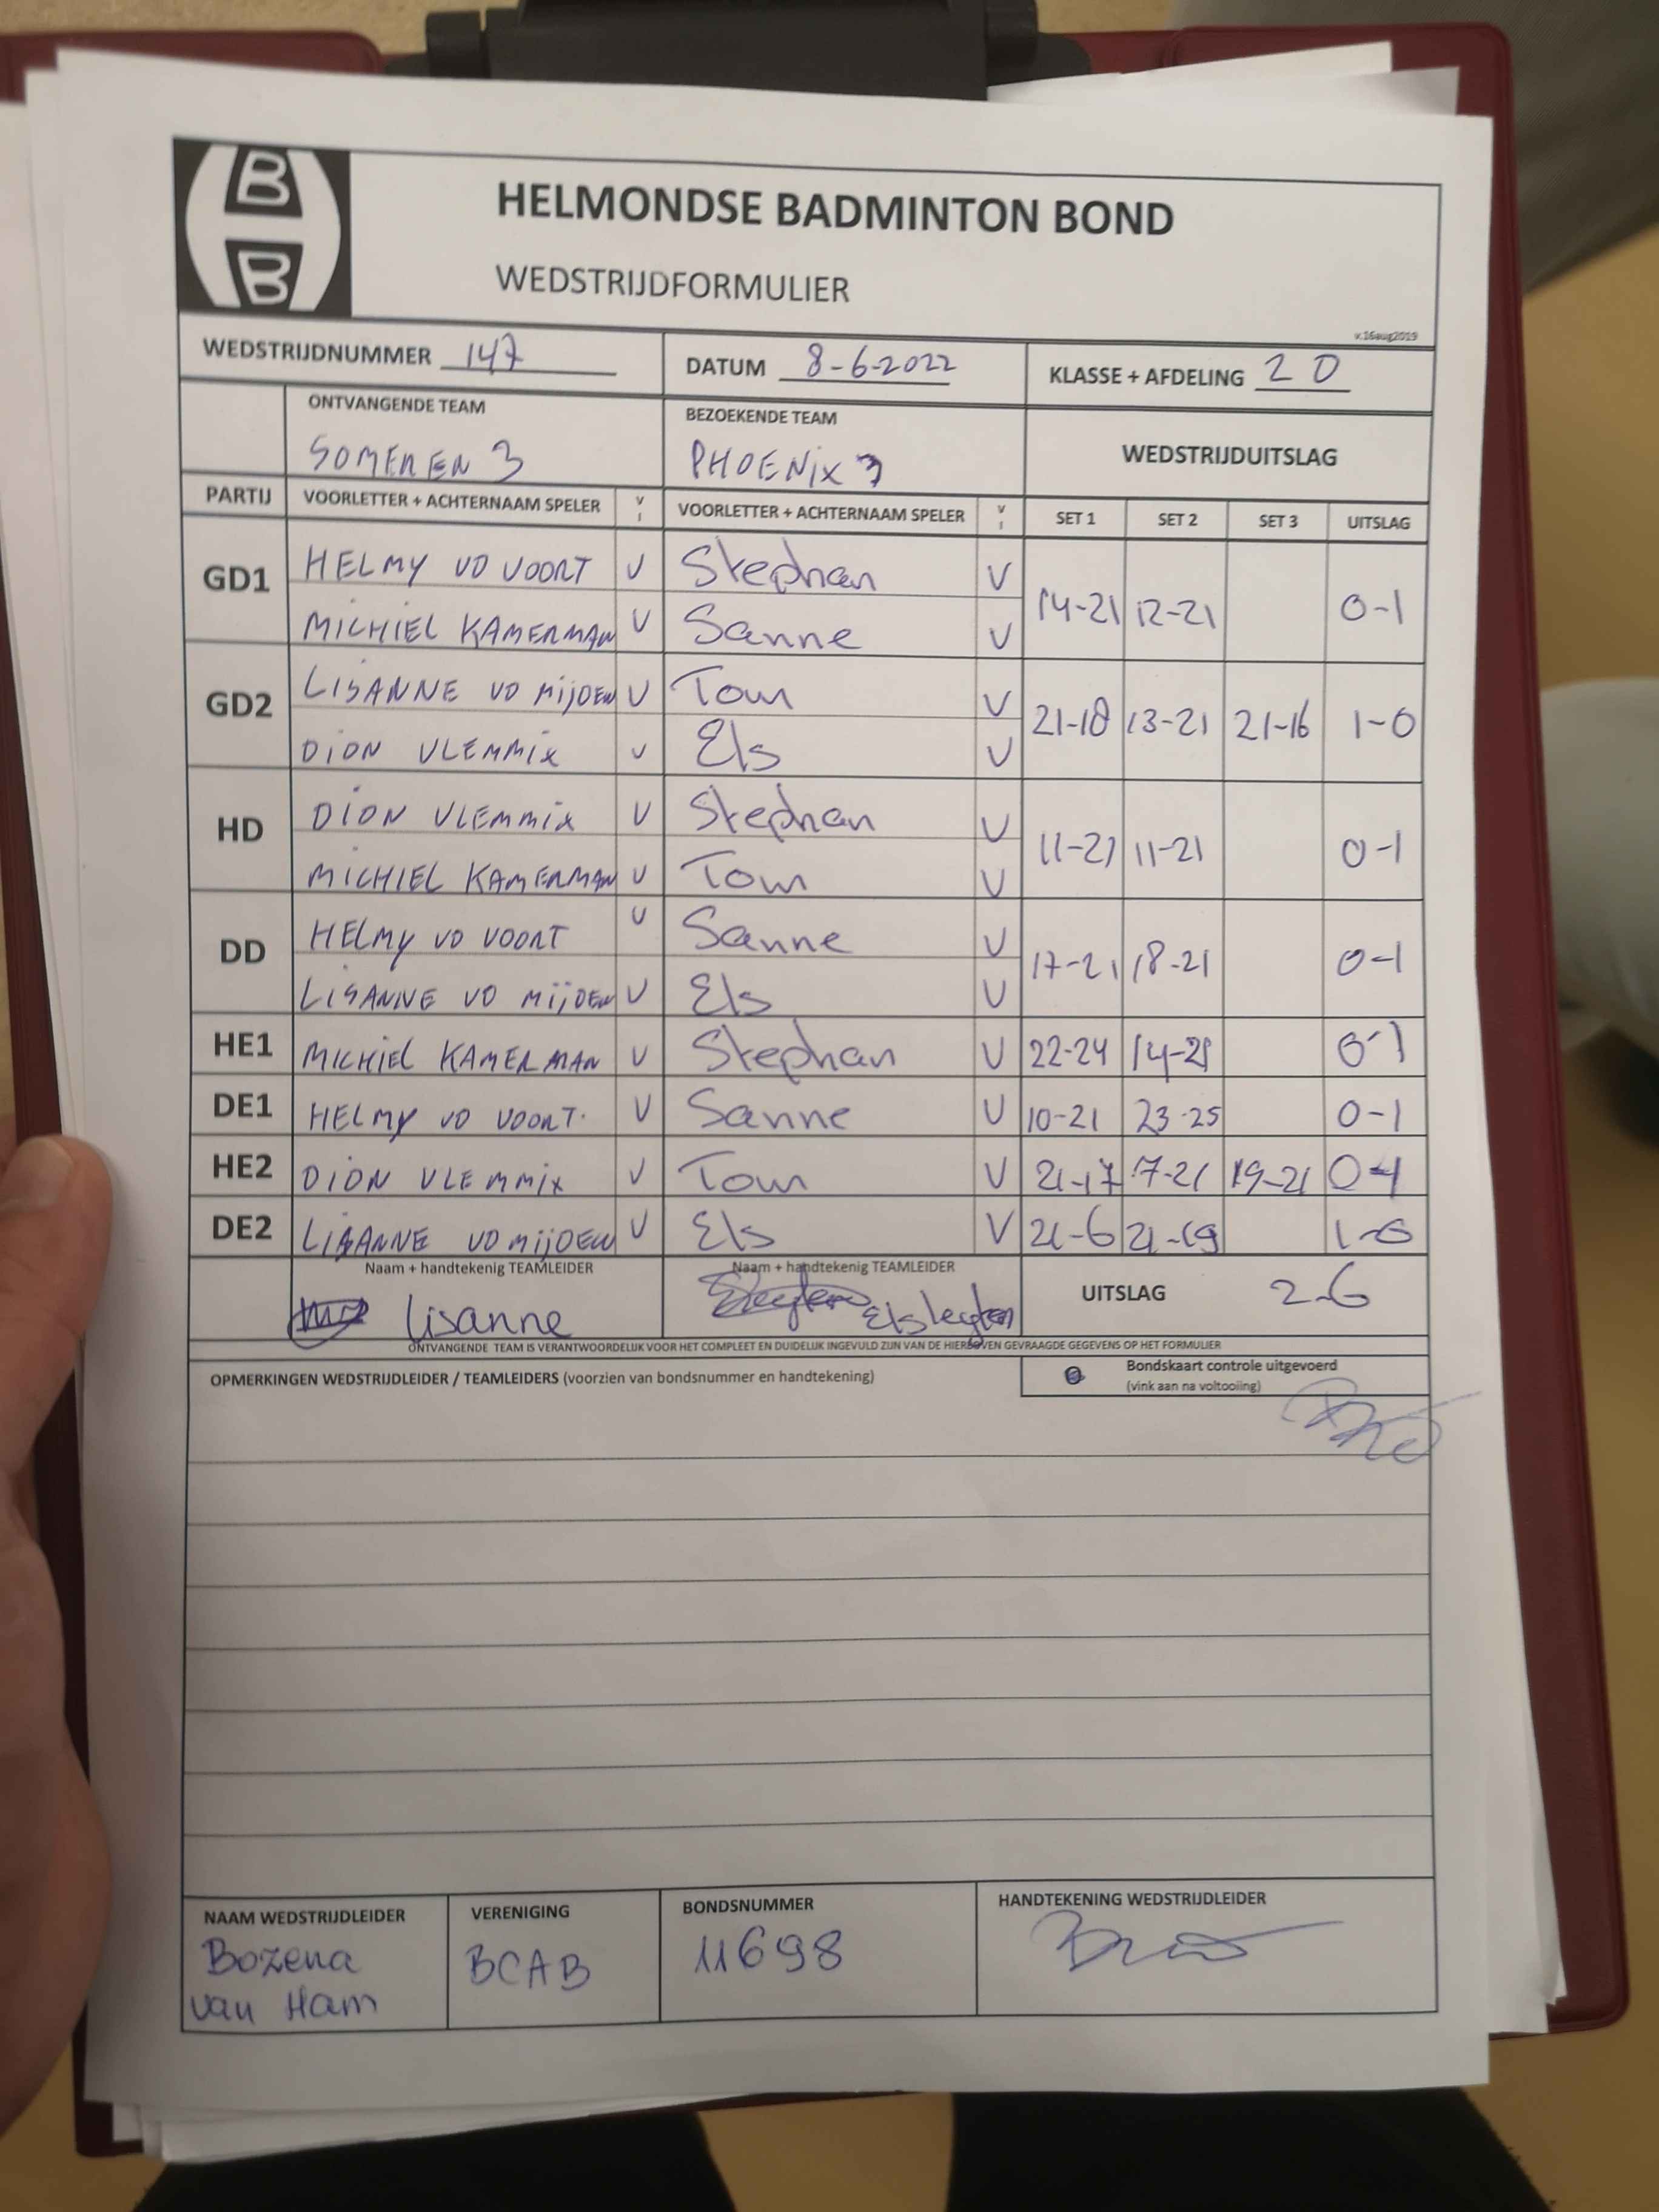 B
B
HELMONDSE BADMINTON BOND
WEDSTRIJDFORMULIER
v.16aug2019
WEDSTRIJDNUMMER 147 DATUM 8-6-2022 KLASSE + AFDELING 2 D
ONTVANGENDE TEAM BEZOEKENDE TEAM WEDSTRIJDUITSLAG
SOMEREN 3 PHOENIX 3
PARTIJ VOORLETTER + ACHTERNAAM SPELER V I VOORLETTER + ACHTERNAAM SPELER V I SET 1 SET 2 SET 3 UITSLAG
GD1 HELMY VD VOORT V Stephan V 14-21 12-21 0-1
MICHIEL KAMERMAN V Sanne V
GD2 LISANNE VD MIJDEN V Tom V 21-18 13-21 21-16 1-0
DION VLEMMIX V Els V
HD DION VLEMMIX V Stephan V 11-21 11-21 0-1
MICHIEL KAMERMAN V Tom V
DD HELMY VD VOORT V Sanne V 17-21 18-21 0-1
LISANNE VD MIJDEN V Els V
HE1 MICHIEL KAMERMAN V Stephan V 22-24 14-21 0-1
DE1 HELMY VD VOORT. V Sanne V 10-21 23-25 0-1
HE2 DION VLEMMIX V Tom V 21-17 7-21 19-21 0-1
DE2 LISANNE VD MIJDEN V Els V 21-6 21-19 1-0
Naam + handtekenig TEAMLEIDER Naam + handtekenig TEAMLEIDER UITSLAG 2-6
Lisanne Els legten
ONTVANGENDE TEAM IS VERANTWOORDELIJK VOOR HET COMPLEET EN DUIDELIJK INGEVULD ZIJN VAN DE HIERBOVEN GEVRAAGDE GEGEVENS OP HET FORMULIER
OPMERKINGEN WEDSTRIJDLEIDER / TEAMLEIDERS (voorzien van bondsnummer en handtekening)
Bondskaart controle uitgevoerd
(vink aan na voltooiing)
NAAM WEDSTRIJDLEIDER VERENIGING BONDSNUMMER HANDTEKENING WEDSTRIJDLEIDER
Bozena BCAB 11698
van Ham